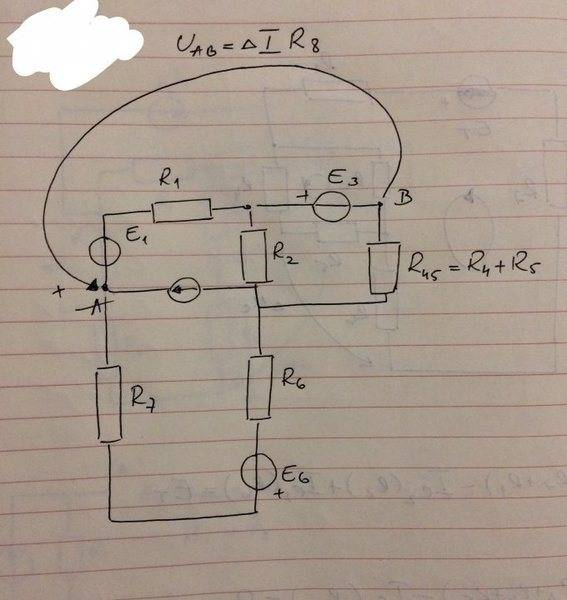 U_AB = Δ I R_8
R_1
+ E_3
B
E_1
R_2
R_45 = R_4 + R_5
+
A
R_7
R_6
E_6
+